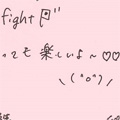 fight
って 楽しいよ~♡♡
\(^o^)/